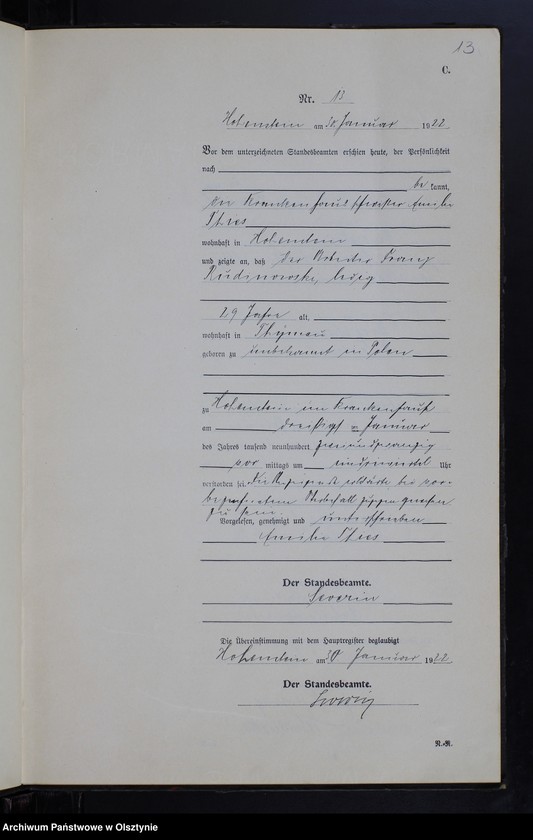 13
C.
Nr. 13
Hohenstein am 30. Januar 1922
Vor dem unterzeichneten Standesbeamten erschien heute, der Persönlichkeit
nach
be kannt,
die Krankenhausschwester Amalie
Thies
wohnhaft in Hohenstein
und zeigte an, daß der Arbeiter Franz
ledig
29 Jahre alt,
wohnhaft in
geboren zu unbekannt in Polen
zu Hohenstein im Krankenhause
am dreißigsten Januar
des Jahres tausend neunhundert zweiundzwanzig
vor mittags um Uhr
verstorben sei. Die Anzeigende erklärte bei vor-
bezeichnetem Sterbefall zugegen gewesen
zu sein.
Vorgelesen, genehmigt und unterschrieben
Amalie Thies
Der Standesbeamte.
Severin
Die Übereinstimmung mit dem Hauptregister beglaubigt
Hohenstein am 30 Januar 1922
Der Standesbeamte.
Severin
N.-R.
Archiwum Państwowe w Olsztynie